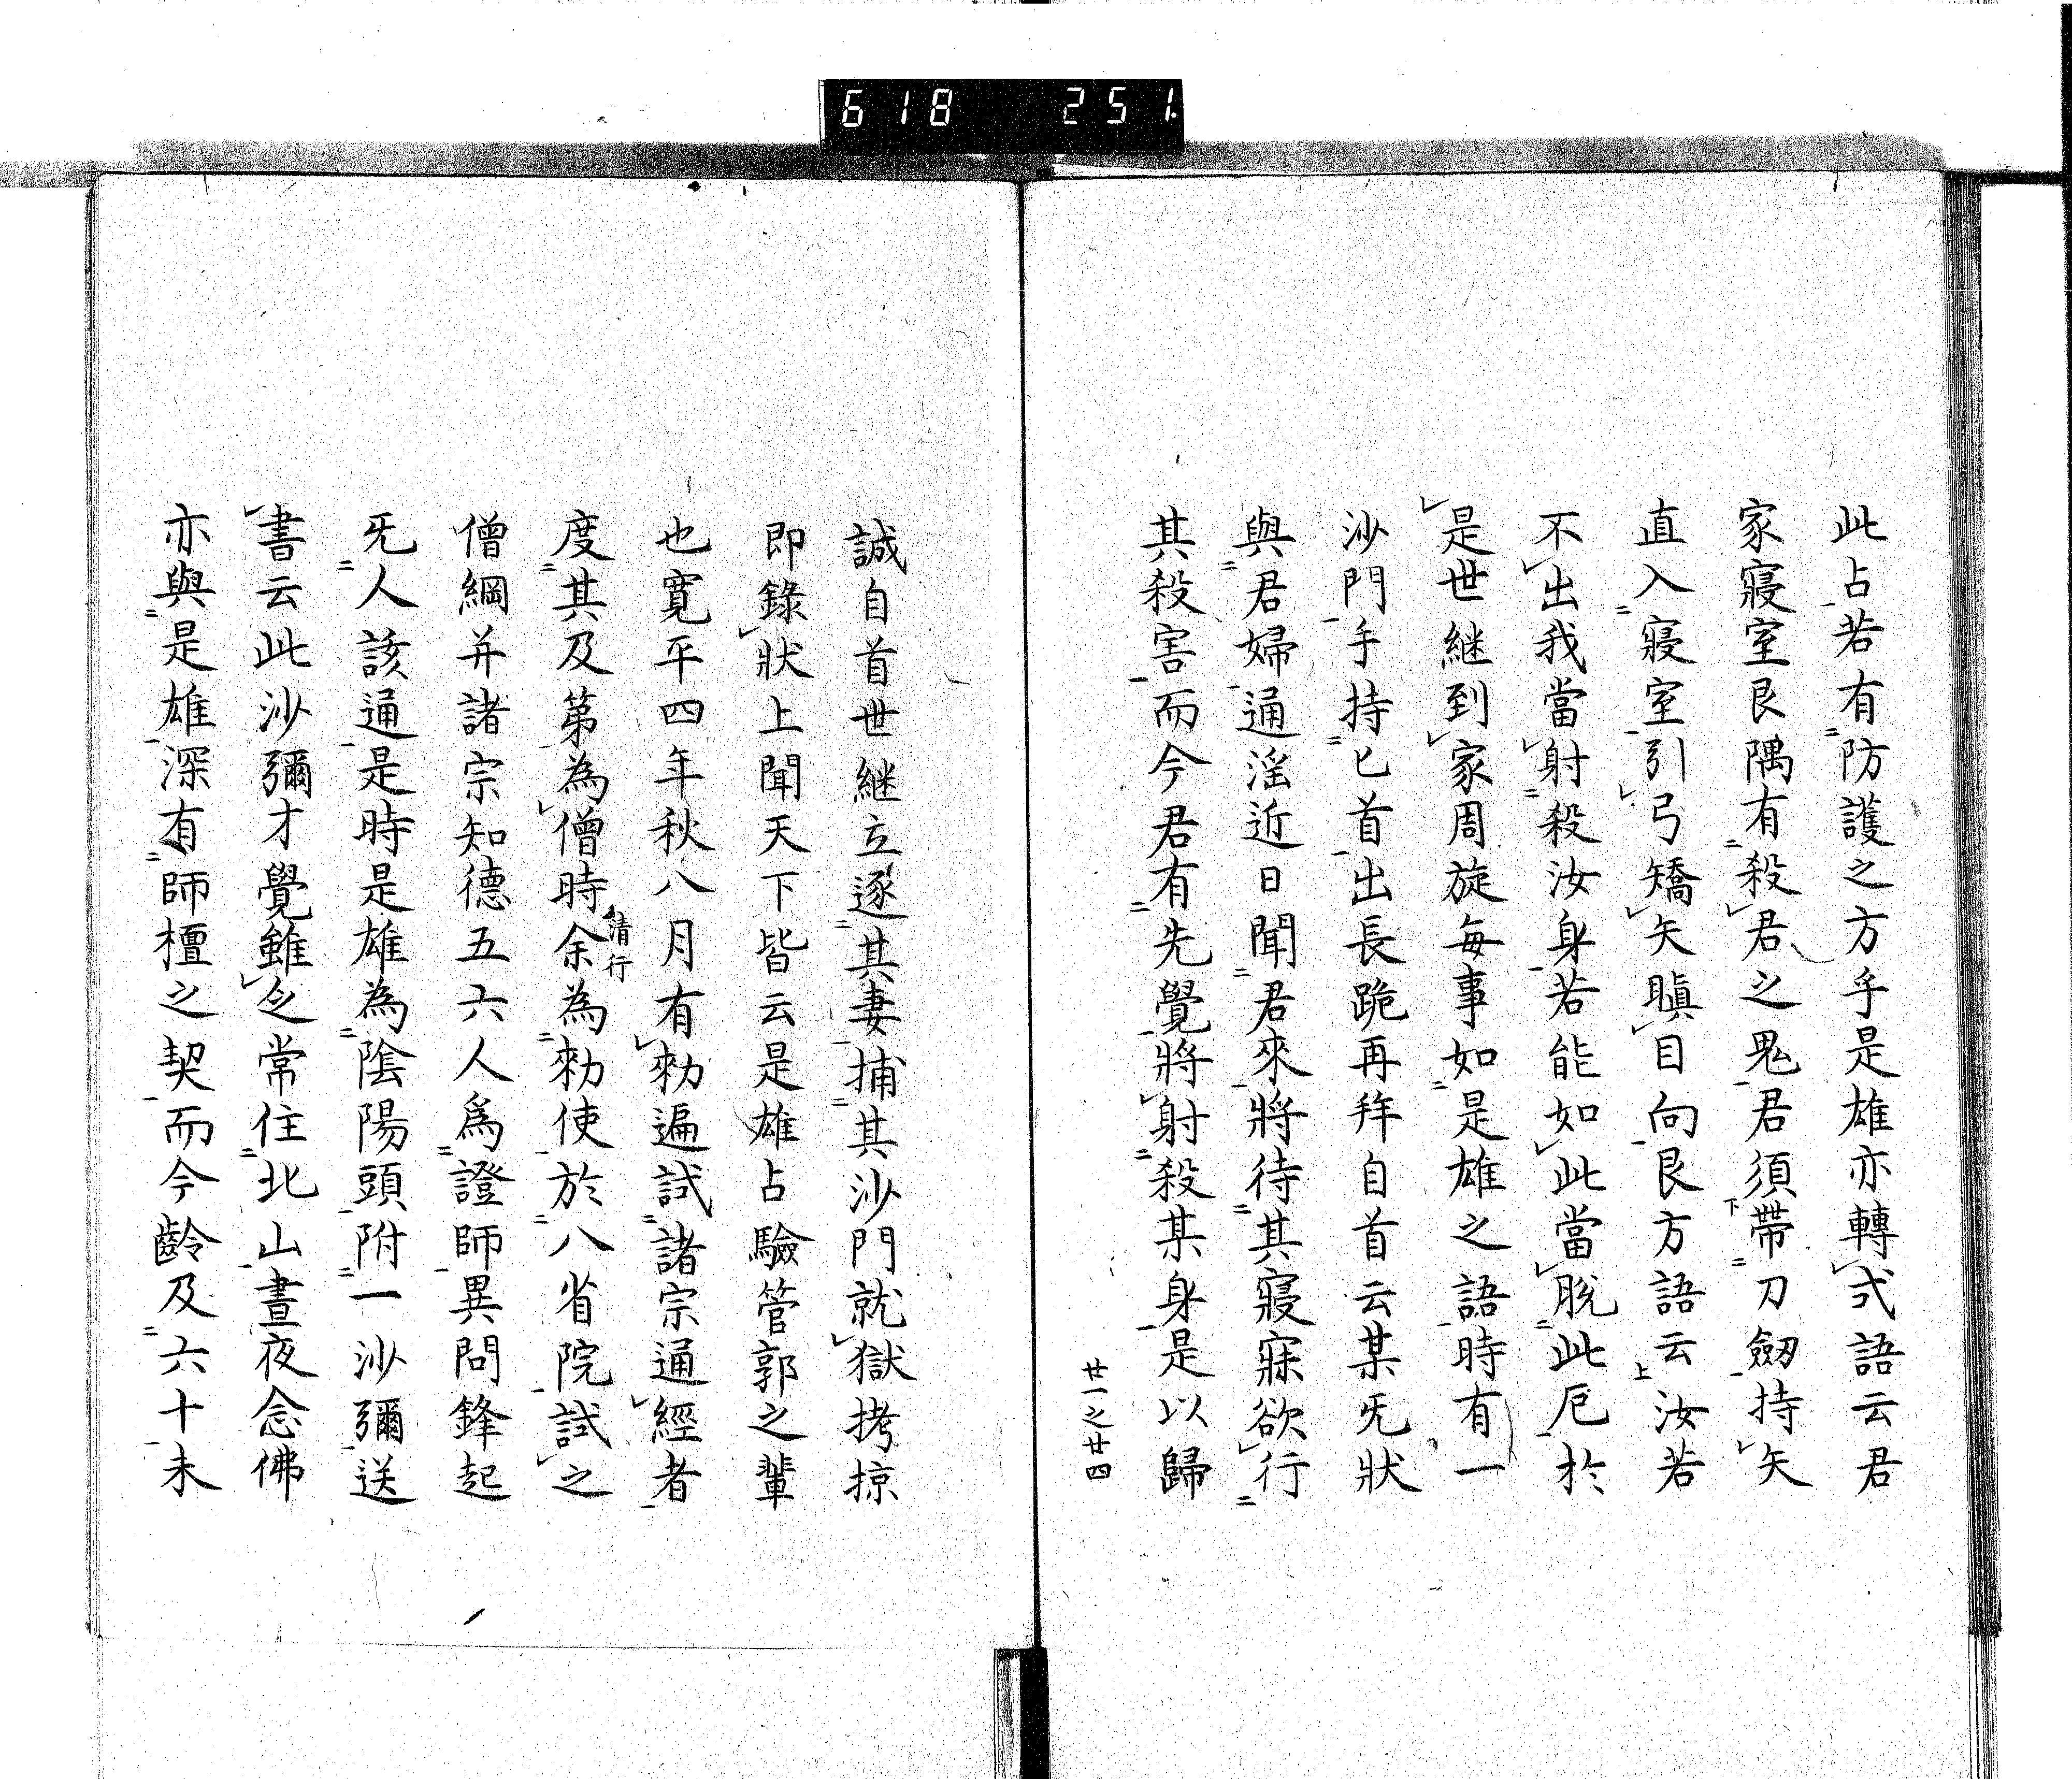 618 251
此占若有防護之方乎是雄亦轉式語云君
家寢室艮隅有殺君之鬼君須帶刀劒持矢
直入寢室引弓矯矢瞋目向艮方語云汝若
不出我當射殺汝身若能如此當脫此厄於
是世継到家周旋每事如是雄之語時有一
沙門手持匕首出長跪再拜自首云某旡狀
與君婦通淫近日聞君來將待其寢寐欲行
其殺害而今君有先覺將射殺某身是以歸
廿一之廿四
誠自首世継立逐其妻捕其沙門就獄拷掠
即錄狀上聞天下皆云是雄占驗管郭之輩
也寛平四年秋八月有勑遍試諸宗通經者
度其及第為僧時余清行為勑使於八省院試之
僧綱并諸宗知德五六人爲證師異問鋒起
旡人該通是時是雄為陰陽頭附一沙彌送
書云此沙彌才覺雖乏常住北山晝夜念佛
亦與是雄深有師檀之契而今齡及六十未